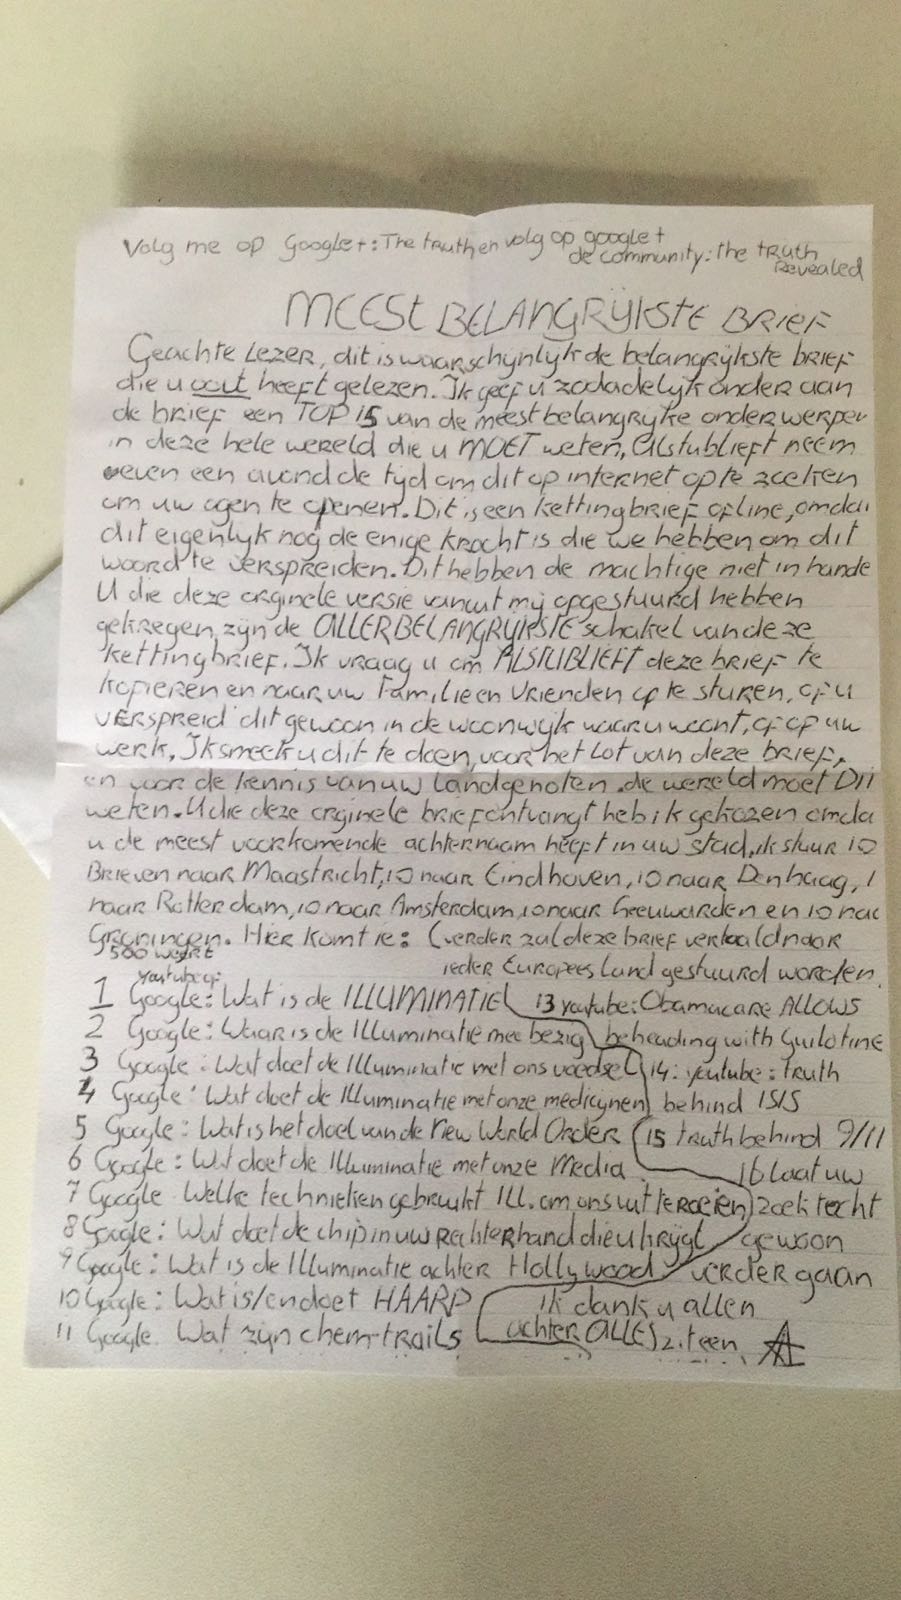 Volg me op Google+: The truth en volg op google+
de community: the truth
Revealed
MEEST BELANGRIJKSTE BRIEF
Geachte Lezer, dit is waarschijnlijk de belangrijkste brief
die u ooit heeft gelezen. Ik geef u zodadelijk onder aan
de brief een TOP 15 van de meest belangrijke onderwerpen
in deze hele wereld die u MOET weten, Alstublieft neem
even een avond de tijd om dit op internet op te zoeken
om uw ogen te openen. Dit is een kettingbrief ofline, omdat
dit eigenlijk nog de enige kracht is die we hebben om dit
woord te verspreiden. Dit hebben de machtige niet in hande
U die deze orginele versie vanuit mij opgestuurd hebben
gekregen, zijn de ALLERBELANGRIJKSTE schakel van deze
kettingbrief. Ik vraag u om ALSTUBLIEFT deze brief te
kopieren en naar uw Familie en vrienden op te sturen, of u
verspreid dit gewoon in de woonwijk waar u woont, of op uw
werk. Ik smeek u dit te doen, voor het lot van deze brief,
en voor de kennis van uw landgenoten. de wereld moet Dit
weten. U die deze orginele brief ontvangt heb ik gekozen omda
u de meest voorkomende achternaam heeft in uw stad, ik stuur 10
Brieven naar Maastricht, 10 naar Eindhoven, 10 naar Den haag, 1
naar Rotterdam, 10 naar Amsterdam, 10 naar Leeuwarden en 10 naa
Groningen. Hier komt ie: (verder zal deze brief vertaald naar
ieder Europees Land gestuurd worden
500 weert
youtube of:
1 Google: Wat is de ILLUMINATIE
2 Google: Waar is de Illuminatie mee bezig
3 Google: Wat doet de Illuminatie met ons voedsel
4 Google: Wat doet de Illuminatie met onze medicijnen
5 Google: Wat is het doel van de New World Order
6 Google: Wat doet de Illuminatie met onze Media
7 Google Welke technieken gebruikt Ill. om ons uit te roeien
8 Google: Wat doet de chip in uw rechterhand die u krijgt
9 Google: Wat is de Illuminatie achter Hollywood
10 Google: Wat is/en doet HAARP
11 Google. Wat zijn chem-trails
13 youtube: Obamacare ALLOWS
beheading with Guilotine
14: youtube: truth
behind ISIS
15 truth behind 9/11
16 Laat uw
zoektecht
gewoon
verder gaan
ik dank u allen
achter ALLES zitten